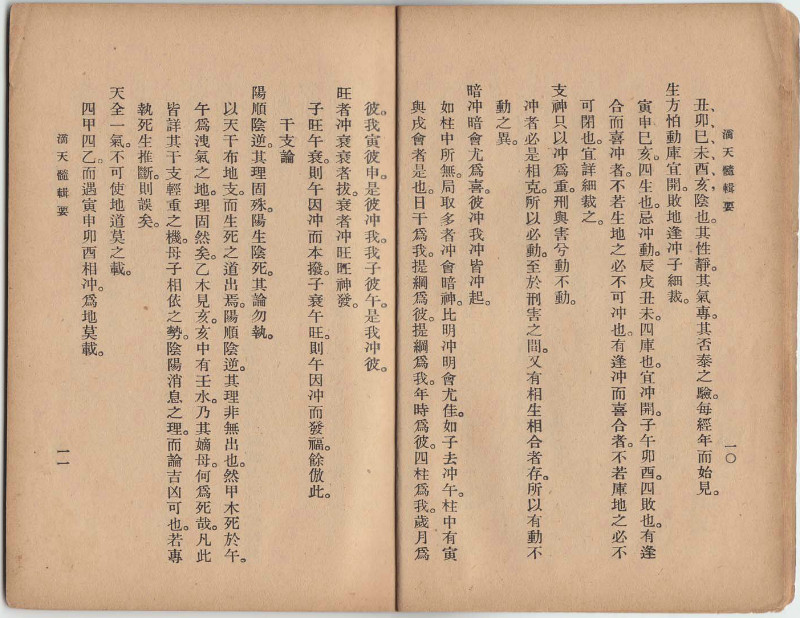 滴天髓輯要
一〇
丑、卯、巳、未、酉、亥、陰也。其性靜。其氣專。其否泰之驗。每經年而始見。
生方怕動庫宜開。敗地逢冲子細裁。
寅申巳亥。四生也。忌冲動。辰戌丑未。四庫也。宜冲開。子午卯酉。四敗也。有逢
合而喜冲者。不若生地之必不可冲也。有逢冲而喜合者。不若庫地之必不
可閉也。宜詳細裁之。
支神只以冲爲重。刑與害兮動不動。
冲者必是相克。所以必動。至於刑害之間。又有相生相合者存。所以有動不
動之異。
暗冲暗會尤爲喜。彼冲我冲皆冲起。
如柱中所無。局取多者冲會暗神。比明冲明會尤佳。如子去冲午。柱中有寅
與戌會者是也。日干爲我。提綱爲彼。提綱爲我。年時爲彼。四柱爲我。歲月爲
彼。我寅彼申。是彼冲我。我子彼午。是我冲彼。
旺者冲衰衰者拔。衰者冲旺旺神發。
子旺午衰。則午因冲而本撥。子衰午旺。則午因冲而發福。餘倣此。
干支論
陽順陰逆。其理固殊。陽生陰死。其論勿執。
以天干布地支。而生死之道出焉。陽順陰逆。其理非無出也。然甲木死於午。
午爲洩氣之地。理固然矣。乙木見亥。亥中有壬水。乃其嫡母。何爲死哉。凡此
皆詳其干支輕重之機。母子相依之勢。陰陽消息之理。而論吉凶可也。若專
執死生推斷。則誤矣。
天全一氣。不可使地道莫之載。
四甲四乙。而遇寅申卯酉相冲。爲地莫載。
滴天髓輯要
一一